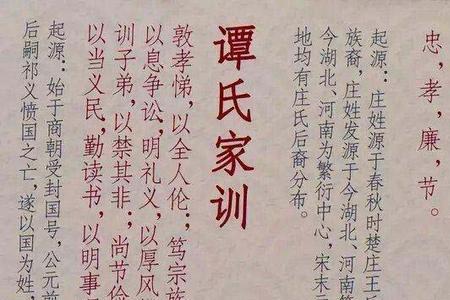 忠，孝，廉，节。
起源：庄姓源于春秋时楚庄王
族裔，庄姓发源于今湖北、河南
今湖北、河南为繁衍中心，宋末元
地均有庄氏后裔分布。
谭氏家训
敦孝悌，以全人伦；笃宗族
以息争讼，明礼义，以厚风
训子弟，以禁其非；尚节俭
以当义民，勤读书，以明事
起源：始于商朝受封国号，公元前
后嗣祁义愤国之亡，遂以国为姓